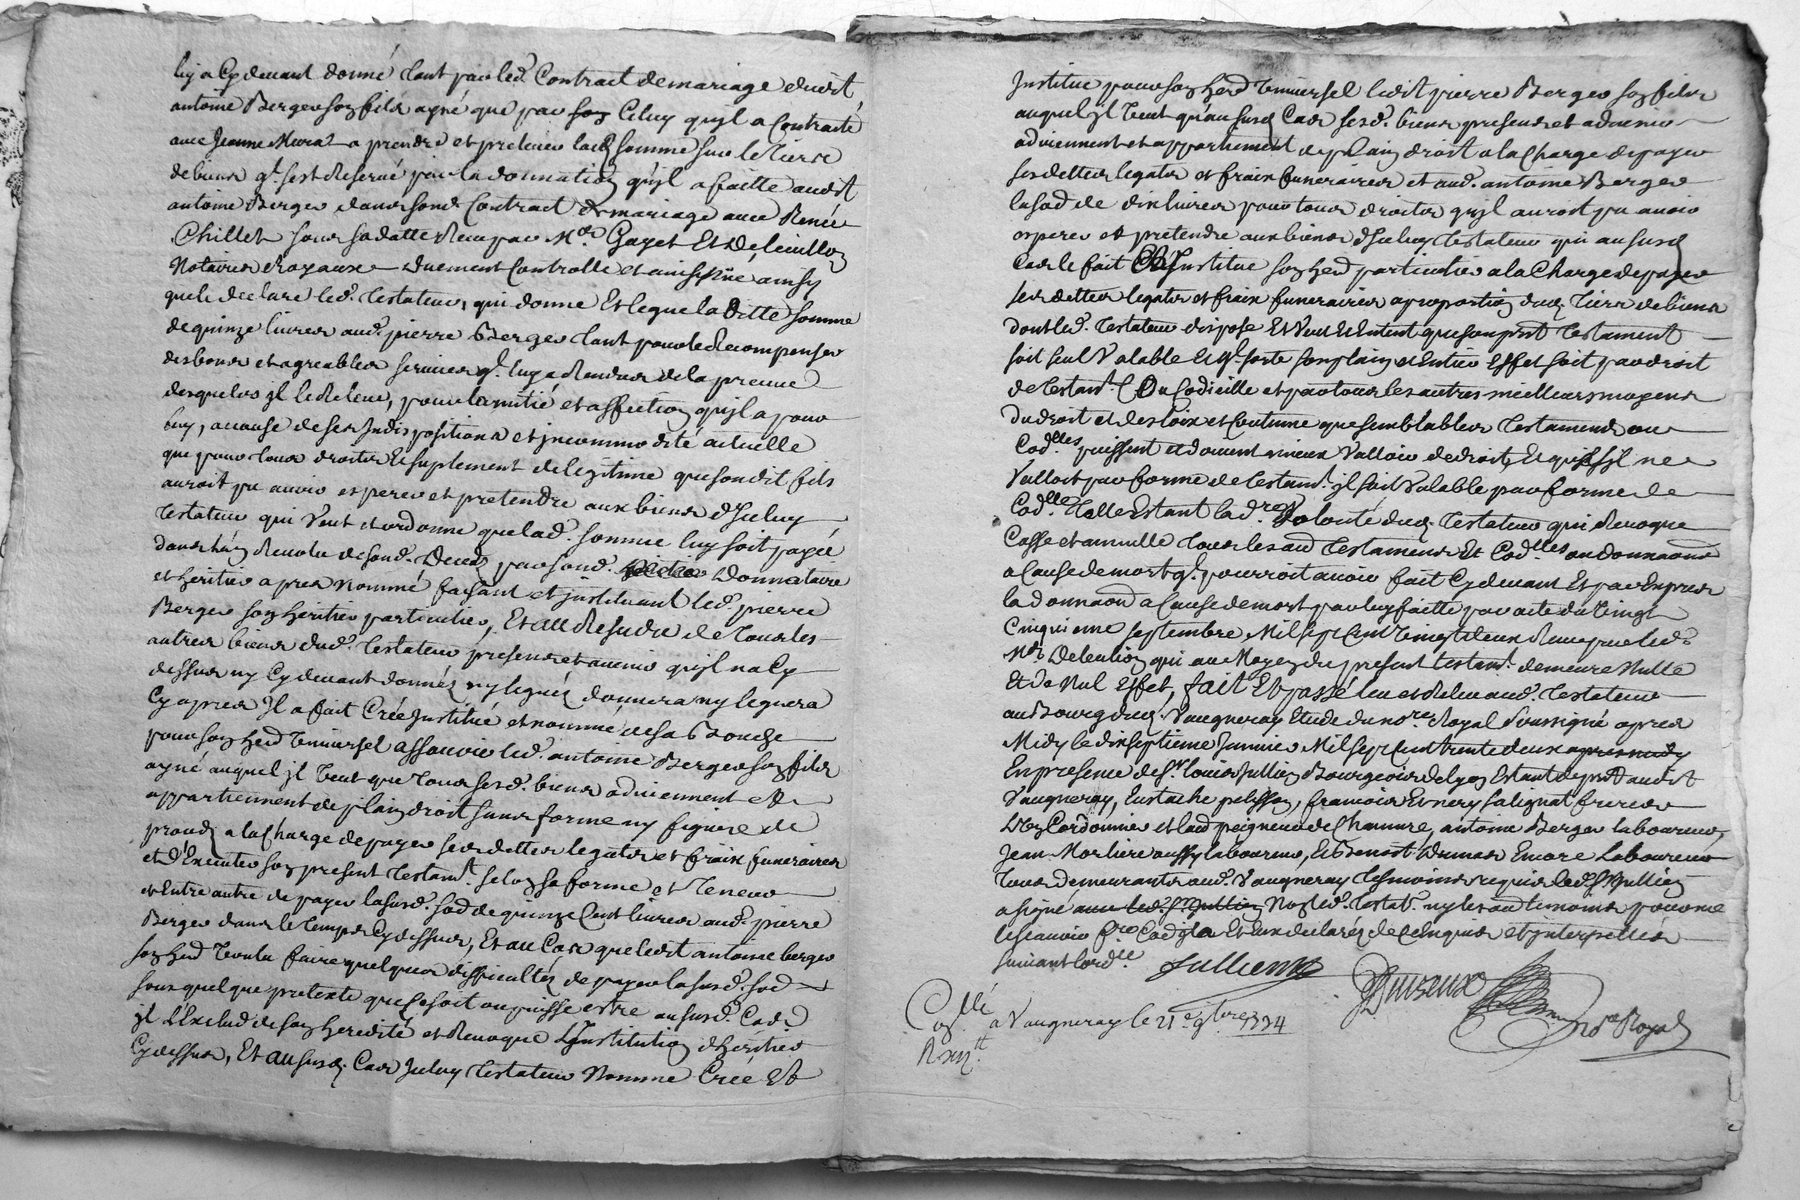 luy a Cy devant donné tant par led. Contract de mariage dudit
antoine Berger son fils ayné que par son Celuy qu'jl a Contracté
avec Jeanne Murat a prendre et prelever lad. somme sur le tiers
de biens qt. s'est Reservé par la donnation qu'jl a faitte audit
antoine Berger dans sond. Contract de mariage avec Renée
Chillet sous sa datte Receu par Mes. Gayet Et Deleullion
Notaires Royaux duement Controllé et insinué ainsy
que le declare led. testateur, qui donne Et legue la Ditte somme
de quinze livres aud. pierre Berger tant pour le Recompenser
des bons et agreables services qt. luy a Rendus de la preuve
desquels jl le Releve, pour lamitié et affection qu'jl a pour
luy, a cause de ses Indispositions et jncommodité actuelle
que pour tous droits Et suplement de légitime que sondit fils
auroit pu avoir esperer et pretendre aux biens d'Iceluy
testateur qui Veut et ordonne que lad. somme luy soit payée
dans l'an Revolu de sond. Deces par sond. Donnataire
et heritier apres Nommé faisant et jnstituant led. pierre
Berger son heritier particulier, Et au Residu de tous les
autres biens dud. testateur presens et avenir qu'jl na Cy
dessus ny Cy devant donnés ny legués donnera ny leguera
Cy apres Jl a fait Créé Jnstitué et nommé de sa bouche
pour son herd. Universel assavoir led. antoine Berger son fils
ayné auquel jl Veut que tous sesd. biens adviennent et
appartiennent de plain droit sans forme ny figure de
proces a la Charge de payer ses dettes legats et fraix funeraires
et d'Executer son present testamt. selon sa forme et teneur
et Entre autre de payer la susd. some de quinze Cent livres aud. pierre
Berger dans le temps Cy dessus, Et au Cas que ledit antoine berger
son herd. Voulu faire quelques difficultés de payer la susd. some
sous quelque pretexte que Ce soit ou puisse estre au susd. Cas
jl L'Exclud de son heredité et Revoque L'Jnstitution d'heritier
Cy dessus, Et au susd. Cas Jceluy testateur Nomme Créé Et
Jnstitue pour son herd. Universel ledit pierre Berger son fils
auquel jl Veut qu'au susd. Cas sesd. biens presens et advenir
adviennent et appartiennent de plain droit a la Charge de payer
ses dettes legats et fraix funeraires et aud. antoine Berger
la some de dix livres pour tous droits qu'jl auroit pu avoir
esperer et pretendre aux biens d'Iceluy testateur qui au susd.
Cas le fait Et Jnstitue son herd. particulier a la Charge de payer
ses dettes legats et fraix funeraires a proportion dud. tiers de biens
dont led. testateur dispose Et Veut Et Entent que son prnt testament
soit seul Valable Et qt. sorte son plain et Entier Effet soit par droit
de testamt. Ou Codicille et par tous les autres meilleurs moyens
du droit et des loix et Coutume que semblables testamens ou
Codlles. puissent et doivent mieux Valloir de droit, Et que s'jl ne
Valloit par forme de testamt. jl soit Valable par forme de
Codlle. telle Estant la dre. Volonté dud. testateur qui Revoque
Casse et annulle tous les aud testamens Et Codlles. ou donnaons
a Cause de mort qt. pourroit avoir fait Cy devant Et par Expres
la donnaon a Cause de mort par luy faitte par acte du Vingt
Cinquieme septembre Mil sept Cent Vingt deux Receu par led.
Me. Deleullion qui au Moyen du present testamt. demeure Nulle
Et de Nul Effet, fait Et passé leu et Releu aud. testateur
au Bourg dud. Vaugneray Etude du nore. Royal soussigné apres
Midy le dixseptieme Janvier Mil sept Cent trente deux apres midy
En presence de Sr. louis Jullien Bourgeois de lyon Estant de prnt audit
Vaugneray, Eustache pelisson, francois Et nery salignat freres
Mes. Cordonnier et lad peigneur de Chanvre, antoine Berger laboureur,
Jean Morliere aussy laboureur, Et Benoit Dumas Encore Laboureur
tous demeurants aud. Vaugneray tesmoins requis led. Sr. Jullien
a signé avec led. Sr. Jullien Non led. testatr. ny les aud temoins pour ne
le scavoir fre. Et Eux declarés de Ce Enquis et jnterpellés
suivant lorde.
Jullien
Controllé a Vaugneray le 21e. 9bre 1734
R xijs.
nore Royal